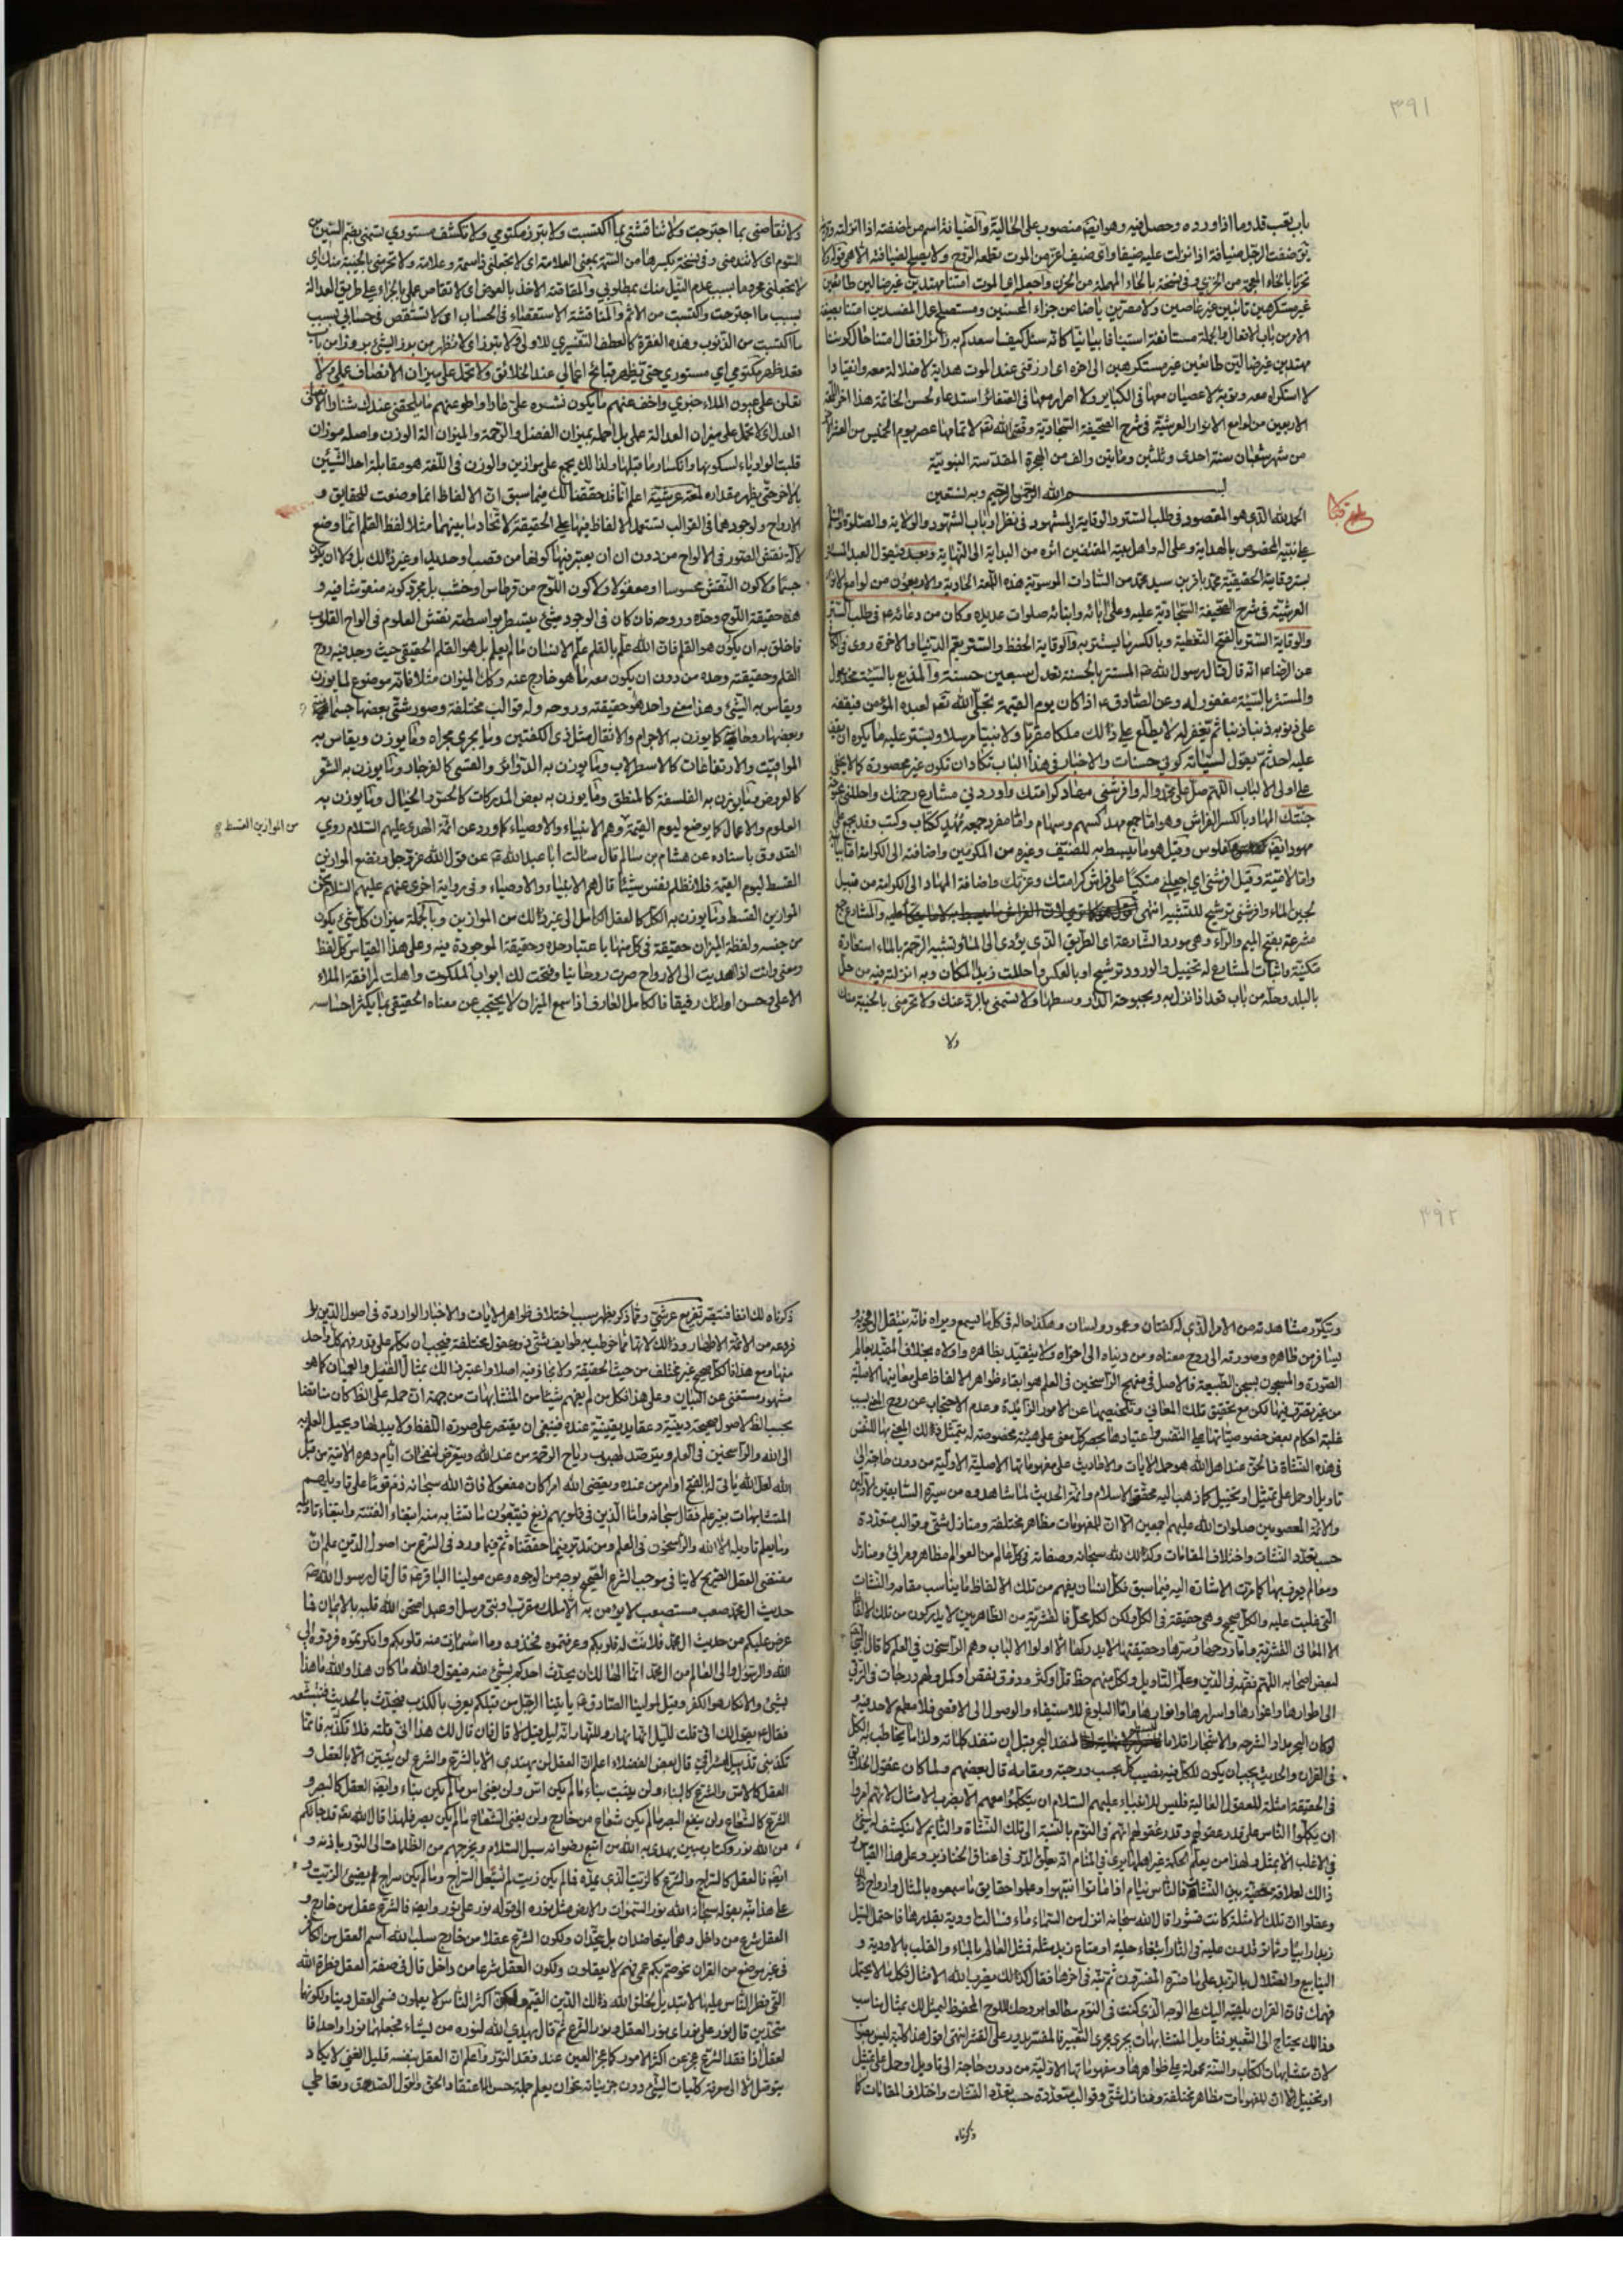 ٣٩١
باب يعقب قدوما اذا ورده وحصل فيه وهو ايضا منصوب على الحالية والضيافة اسم من اضفته اذا انزلته وقربته
يق ضفت الرجل ضيافة اذا نزلت عليه ضيفا واى ضيف اعز من الموت يقطعه الروح ولا يصلح لضيافته الا هى قوله
غير مستكرهين تائبين غير عاصين ولا مصرين يا ضامن جزاء المحسنين ومستصلح عمل المفسدين امتنا بصيغة
الامر من باب الافعال والجملة مستانفة استينافا بيانيا كانه سئل كيف اسعدكم به زائرا فقال امتنا حال كوننا
مهتدين غير ضالين طائعين غير مستكرهين الى اخره اى ارزقنى عند الموت هداية لا ضلالة معه وانقيادا
لا استكراه معه وتوبة لا عصيان معها فى الكباير ولا اصرار معها فى الصغائر استدعاء لحسن الخاتمة هذا اخر اللمعة
الاربعين من لوامع الانوار العرشية فى شرح الصحيفة السجادية وفقنى الله تعالى لاتمامها عصر يوم الخميس من العشر
من شهر شعبان سنة احدى وثلثين ومائتين والف من الهجرة المقدسة النبوية
بسم الله الرحمن الرحيم وبه نستعين
الحمد لله الذى هو المقصود فى طلب الستر والوقاية والمشهود فى نظر ارباب الشهود والولاية والصلوة والسلام
على نبيه المخصوص بالهداية وعلى اله واهل بيته المقتفين اثره من البداية الى النهاية وبعد فيقول العبد
بستر وقاية الحقيقية محمد باقر بن سيد محمد من السادات الموسوية هذه اللمعة الحادية والاربعون من لوامع الانوار
العرشية فى شرح الصحيفة السجادية عليه وعلى ابائه وابنائه صلوات عديده وكان من دعائه ع فى طلب الستر
والوقاية الستر بالفتح التغطية وبالكسر ما يستتر به والوقاية الحفظ والستر يعم الدنيا والاخرة روى فى
عن الرضا ع انه قال قال رسول الله ص المستتر بالحسنة تعدل سبعين حسنة والمذيع بالسيئة مخذول
والمستتر بالسيئة مغفور له وعن الصادق ع اذا كان يوم القيمة تجلى الله تعالى لعبده المؤمن فيقفه
على ذنوبه ذنبا ذنبا ثم يغفر له لا يطلع على ذلك ملكا مقربا ولا نبيا مرسلا ويستر عليه ما يكره ان يقف
عليه احد ثم يقول لسيئاته كونى حسنات والاخبار فى هذا الباب تكاد ان تكون غير محصورة كما لا يخفى
على اولى الالباب اللهم صل على محمد واله وافرشنى مهاد كرامتك واوردنى مشارع رحمتك واحللنى بحبوحة
جنتك المهاد بالكسر الفراش وهو اما جمع مهد كسهم وسهام واما مفرد جمعه مهد ككتاب وكتب وقد يجمع على
لجين الماء وافرشنى ترشيح للتشبيه انتهى
مشرعة بفتح الميم والراء وهى مورد الشاربة اى الطريق الذى يؤدى الى الماء وتشبيه الرحمة بالماء استعارة
مكنية واثبات المشارع له تخييل والورود ترشيح او بالعكس واحللت زيدا المكان وبه انزلته فيه من حل
بالبلد وحله من باب قعد اذا نزل به وبحبوحة الدار وسطها ولا تسمنى بالرد عنك ولا تحرمنى بالخيبة منك
ولا
ولا تقاصنى بما اجترحت ولا تناقشنى بما اكتسبت ولا تبرز مكتومى ولا تكشف مستورى تسمنى بضم السين من
السوم اى لا تذلنى وفى نسخة بكسرها من السمة بمعنى العلامة اى لا تجعلنى ذا سمة وعلامة ولا تحرمنى بالخيبة منك اى
لا تجعلنى محروما بسبب عدم النيل منك بمطلوبى والمقاصة الاخذ بالعوض اى لا تقاص عملى بالجزاء على طريق العدالة
بسبب ما اجترحت واكتسبت من الاثم والمناقشة الاستقصاء فى الحساب اى لا تستقص فى حسابى بسبب
ما اكتسبت من الذنوب وهذه الفقرة كالعطف التفسيرى للاولى ولا تبرز اى لا تظهر من برز الشئ بروزا من باب
قعد ظهر مكتومى اى مستورى حتى تظهر قبائح اعمالى عند الخلائق ولا تحمل على ميزان الانصاف عملى ولا
تعلن على عيون الملاء خبرى واخف عنهم ما يكون نشره على عارا واطو عنهم ما يلحقنى عندك شنارا
العدل اى لا تحمل على ميزان العدالة عملى بل احمله بميزان الفضل والرحمة والميزان الة الوزن واصله موزان
قلبت الواو ياء لسكونها وانكسار ما قبلها ولذا لك يجمع على موازين والوزن فى اللغة هو مقابلة احد الشيئين
بالاخر حتى يظهر مقداره لمعة عرشية اعلم انا قد حققنا لك فيما سبق ان الالفاظ انما وضعت للحقايق و
الارواح ولوجودهما فى القوالب تستعمل الالفاظ فيها على الحقيقة لاتحاد ما بينهما مثلا لفظ القلم انما وضع
لالة نقش الصور فى الالواح من دون ان يعتبر فيها كونها من قصب او حديد او غير ذلك بل ولا ان يكون
جسما ولا كون النقش محسوسا او معقولا ولا كون اللوح من قرطاس او خشب بل مجرد كونه منقوشا فيه و
هذه حقيقة اللوح وحده وروحه فان كان فى الوجود شئ يتسطر بواسطته نقش العلوم فى الواح القلوب
فاخلق به ان يكون هو القلم فان الله علم بالقلم علم الانسان ما لم يعلم بل هو القلم الحقيقى حيث وجد فيه روح
القلم وحقيقته وحده من دون ان يكون معه ما هو خارج عنه وكذا الميزان مثلا فانه موضوع لما يوزن
ويقاس به الشئ وهذا معنى واحد هو حقيقته وروحه وله قوالب مختلفة وصور شتى بعضها جسمانية
وبعضها روحانية كما يوزن به الاجرام والاثقال مثل ذى الكفتين وما يجرى مجراه وما يوزن ويقاس به
المواقيت والارتفاعات كالاسطرلاب وما يوزن به الدوائر والقسى كالفرجار وما يوزن به الشعر
كالعروض وما يوزن به الفلسفة كالمنطق وما يوزن به بعض المدركات كالحس والخيال وما يوزن به
العلوم والاعمال كما يوضع ليوم القيمة وهم الانبياء والاوصياء كما ورد عن ائمة الهدى عليهم السلام روى
من الموازين القسط
الصدوق باسناده عن هشام بن سالم قال سئالت ابا عبد الله ع عن قول الله عز وجل ونضع الموازين
القسط ليوم القيمة فلا تظلم نفس شيئا قال هم الانبياء والاوصياء وفى رواية اخرى عنهم عليهم السلام نحن
الموازين القسط وما يوزن به الكل كالعقل الكامل الى غير ذلك من الموازين وبالجملة ميزان كل شئ يكون
من جنسه ولفظة الميزان حقيقة فى كل منها باعتبار حده وحقيقته الموجودة فيه وعلى هذا القياس كل لفظ
ومعنى وانت اذا اهتديت الى الارواح صرت روحانيا وفتحت لك ابواب الملكوت واهلت لمرافقة الملاء
الاعلى وحسن اولئك رفيقا فالكامل العارف اذا سمع الميزان لا يحتجب عن معناه الحقيقى بما يكثر احساسه
٣٩٢
ويتكرر مشاهدته من الامر الذى له كفتان وعمود ولسان وهكذا حاله فى كل ما يسمع ويراه فانه ينتقل الى فحواه و
يسافر من ظاهره وصورته الى روح معناه ومن دنياه الى اخراه ولا يتقيد بظاهره واولاه بخلاف المقيد بعالم
الصورة والمسجون بسجن الطبيعة فالاصل فى منهج الراسخين فى العلم هو ابقاء ظواهر الالفاظ على معانيها الاصلية
من غير تصرف فيها لكن مع تحقيق تلك المعانى وتلخيصها عن الامور الزائدة وعدم الاحتجاب عن روح المعنى بسبب
غلبة احكام بعض خصوصياتها على النفس واعتيادها بحصر كل معنى على هيئة مخصوصة له يتمثل ذلك المعنى بها للنفس
فى هذه النشاة فالحق عند اهل الله هو حمل الايات والاحاديث على مفهوماتها الاصلية الاولية من دون حاجة الى
تاويل او حمل على تمثيل او تخييل كما ذهب اليه محققوا الاسلام وائمة الحديث لما شاهدوه من سيرة السابقين الاولين
والائمة المعصومين صلوات الله عليهم اجمعين الا ان للمفهومات مظاهر مختلفة ومنازل شتى وقوالب متعددة
حسب تعدد النشات واختلاف المقامات وكذلك لله سبحانه وصفاته فى كل عالم من العوالم مظاهر ومرائى ومنازل
ومعالم يعرف بها كما مرت الاشارة اليه فيما سبق فكل انسان يفهم من تلك الالفاظ ما يناسب مقامه والنشات
التى غلبت عليه والكل صحيح وهى حقيقة فى الكل ولكن لكل محل فالقشرية من الظاهريين لا يدركون من تلك الالفاظ
الا المعانى القشرية واما روحها وسرها وحقيقتها لا يدركها الا اولوا الالباب وهم الراسخون فى العلم كما قال النبى
لبعض اصحابه اللهم فقهه فى الدين وعلمه التاويل ولكل منهم حظ قل او كثر وذوق نقص او كمل ولهم درجات فى الترقى
الى اطوارها واغوارها واسرارها وانوارها واما البلوغ للاستيفاء والوصول الى الاقصى فلا مطمع لاحد فيه و
لو كان البحر مدادا لشرحه والاشجار اقلاما لنفد البحر قبل ان تنفد كلماته ولذا ما يخاطب به الكل
فى القران والحديث يجب ان يكون للكل فيه نصيب كل بحسب درجته ومقامه قال بعضهم ولما كان عقول الخلايق
فى الحقيقة امثلة للعقول العالية فليس للانبياء عليهم السلام ان يتكلموا معهم الا بضرب الامثال لانهم امروا
ان يكلموا الناس على قدر عقولهم وقدر عقولهم انهم فى النوم بالنسبة الى تلك النشاة والنايم لا ينكشف له شئ
فى الاغلب الا بمثل ولهذا من يعلم الحكمة غير اهلها يرى فى المنام انه يعلق الدر فى اعناق الخنازير وعلى هذا القياس
ذالك لعلاقة خفية بين النشات فالناس نيام اذا ماتوا انتبهوا وعلموا حقايق ما سمعوه بالمثال وارواح ذلك
وعقلوا ان تلك الامثلة كانت قشورا قال الله سبحانه انزل من السماء ماء فسالت اودية بقدرها فاحتمل السيل
زبدا رابيا ومما توقدون عليه فى النار ابتغاء حلية او متاع زبد مثله فمثل العالم بالماء والقلب بالاودية و
الينابيع والضلال بالزبد على ما ضره المفسرون ثم نبه فى اخرها فقال كذلك يضرب الله الامثال فكل ما لا يحتمل
فهمك فان القران يلقيه اليك على الوجه الذى كنت فى النوم مطالعا بروحك اللوح المحفوظ ليمثل لك بمثال يناسب
فذالك يحتاج الى التعبير فتاويل المتشابهات يجرى مجرى التعبير فالمفسر يدور على القشر انتهى اقول هذا
لان متشابهات الكتاب والسنة محمولة على ظواهرها ومفهوماتها الاولية من دون حاجة الى تاويل او حمل على تمثيل
او تخييل الا ان للمفهومات مظاهر مختلفة ومنازل شتى وقوالب متعددة حسب تعدد النشات واختلاف المقامات كما
ذكرناه
ذكرناه لك انفا فتبصر تفريع عرشى ومما ذكر يظهر سبب اختلاف ظواهر الايات والاخبار الواردة فى اصول الدين و
فروعه من الائمة الاطهار وذالك لانها مما خوطب به طوايف شتى وعقول مختلفة فيجب ان يكلم على قدر فهم كل واحد
منها ومع هذا فالكل صحيح غير مختلف من حيث الحقيقة ولا مجاز فيه اصلا واعتبر ذالك بمثال الفيل والعميان كما هو
مشهور مستغنى عن البيان وعلى هذا فكل من لم يفهم شيئا من المتشابهات من جهة ان حمله على الظاهر كان مناقضا
بحسب الظاهر لاصول صحيحة دينية وعقايد يقينية عنده فينبغى ان يقتصر على صورة اللفظ ولا يبدلها ويحيل العلم به
الى الله والراسخين فى العلم ويترصد لهبوب رياح الرحمة من عند الله ويتعرض لنفحات ايام دهره الاتية من قبل
الله لعل الله ياتى له بالفتح او امر من عنده ويقضى الله امرا كان مفعولا فان الله سبحانه ذم قوما على تاويلهم
المتشابهات بغير علم فقال سبحانه واما الذين فى قلوبهم زيغ فيتبعون ما تشابه منه ابتغاء الفتنة وابتغاء تاويله
وما يعلم تاويله الا الله والراسخون فى العلم ومن تدبر فيما حققناه ثم فيما ورد فى الشرع من اصول الدين علم ان
مقتضى العقل الصريح لا ينافى موجب الشرع الصحيح بوجه من الوجوه وعن مولينا الباقر ع قال قال رسول الله ص
حديث ال محمد صعب مستصعب لا يؤمن به الا ملك مقرب او نبى مرسل او عبد امتحن الله قلبه بالايمان فما
عرض عليكم من حديث ال محمد فلانت له قلوبكم وعرفتموه فخذوه وما اشمازت منه قلوبكم وانكرتموه فردوه الى
الله والرسول والى العالم من ال محمد انما الهالك ان يحدث احدكم بشئ منه فيقول والله ما كان هذا والله ما هذا
بشئ والانكار هو الكفر وقيل لمولينا الصادق ع ياتينا الرجل من قبلكم يعرف بالكذب فيحدث بالحديث فنستبشعه
فقال ع يقول لك انى قلت لليل انه نهار وللنهار انه ليل قيل لا قال فان قال لك هذا انى قلته فلا تكذب به فانما
تكذبنى تذييل اشراقى قال بعض الفضلاء اعلم ان العقل لن يهتدى الا بالشرع والشرع لن يتبين الا بالعقل و
العقل كالاس والشرع كالبناء ولن يثبت بناء ما لم يكن اس ولن يغنى اس ما لم يكن بناء وايضا العقل كالبصر و
الشرع كالشعاع ولن ينفع البصر ما لم يكن شعاع من خارج ولن يغنى الشعاع ما لم يكن بصر فلهذا قال الله تعالى قد جائكم
من الله نور وكتاب مبين يهدى به الله من اتبع رضوانه سبل السلام ويخرجهم من الظلمات الى النور باذنه و
ايضا فالعقل كالسراج والشرع كالزيت الذى يمده فما لم يكن زيت لم يشعل السراج وما لم يكن سراج لم يضئ الزيت و
على هذا نبه بقوله سبحانه الله نور السموات والارض مثل نوره الى قوله نور على نور وايضا فالشرع عقل من خارج و
العقل شرع من داخل وهما يتعاضدان بل يتحدان ولكون الشرع عقلا من خارج سلب الله اسم العقل من الكافر
فى غير موضع من القران نحو صم بكم عمى فهم لا يعقلون ولكون العقل شرعا من داخل قال فى صفة العقل فطرة الله
التى فطر الناس عليها لا تبديل لخلق الله ذالك الدين القيم ولكن اكثر الناس لا يعلمون فسمى العقل دينا ولكونهما
متحدين قال نور على نور اى نور العقل ونور الشرع ثم قال يهدى الله لنوره من يشاء فجعلهما نورا واحدا فا
لعقل اذا فقد الشرع عجز عن اكثر الامور كما عجز العين عند فقد النور واعلم ان العقل بنفسه قليل الغنى لا يكاد
يتوصل الا الى معرفة كليات الشئ دون جزئياته نحو ان يعلم جملة حسن اعتقاد الحق وقول الصدق وتعاطى